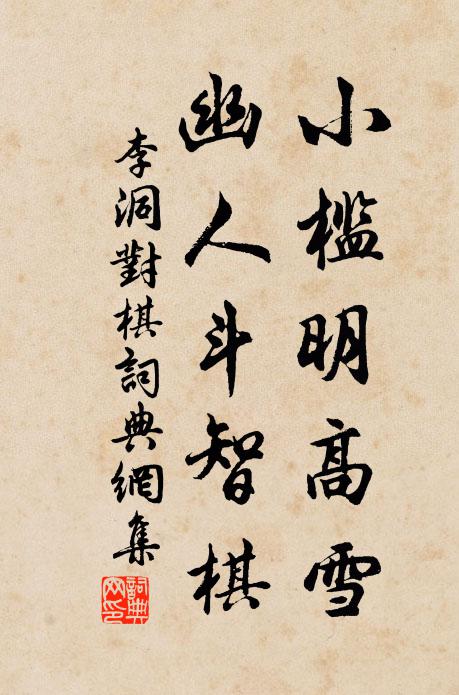 小檻明高雪
幽人斗智棋
李洞對棋詞典網集
詞典網印